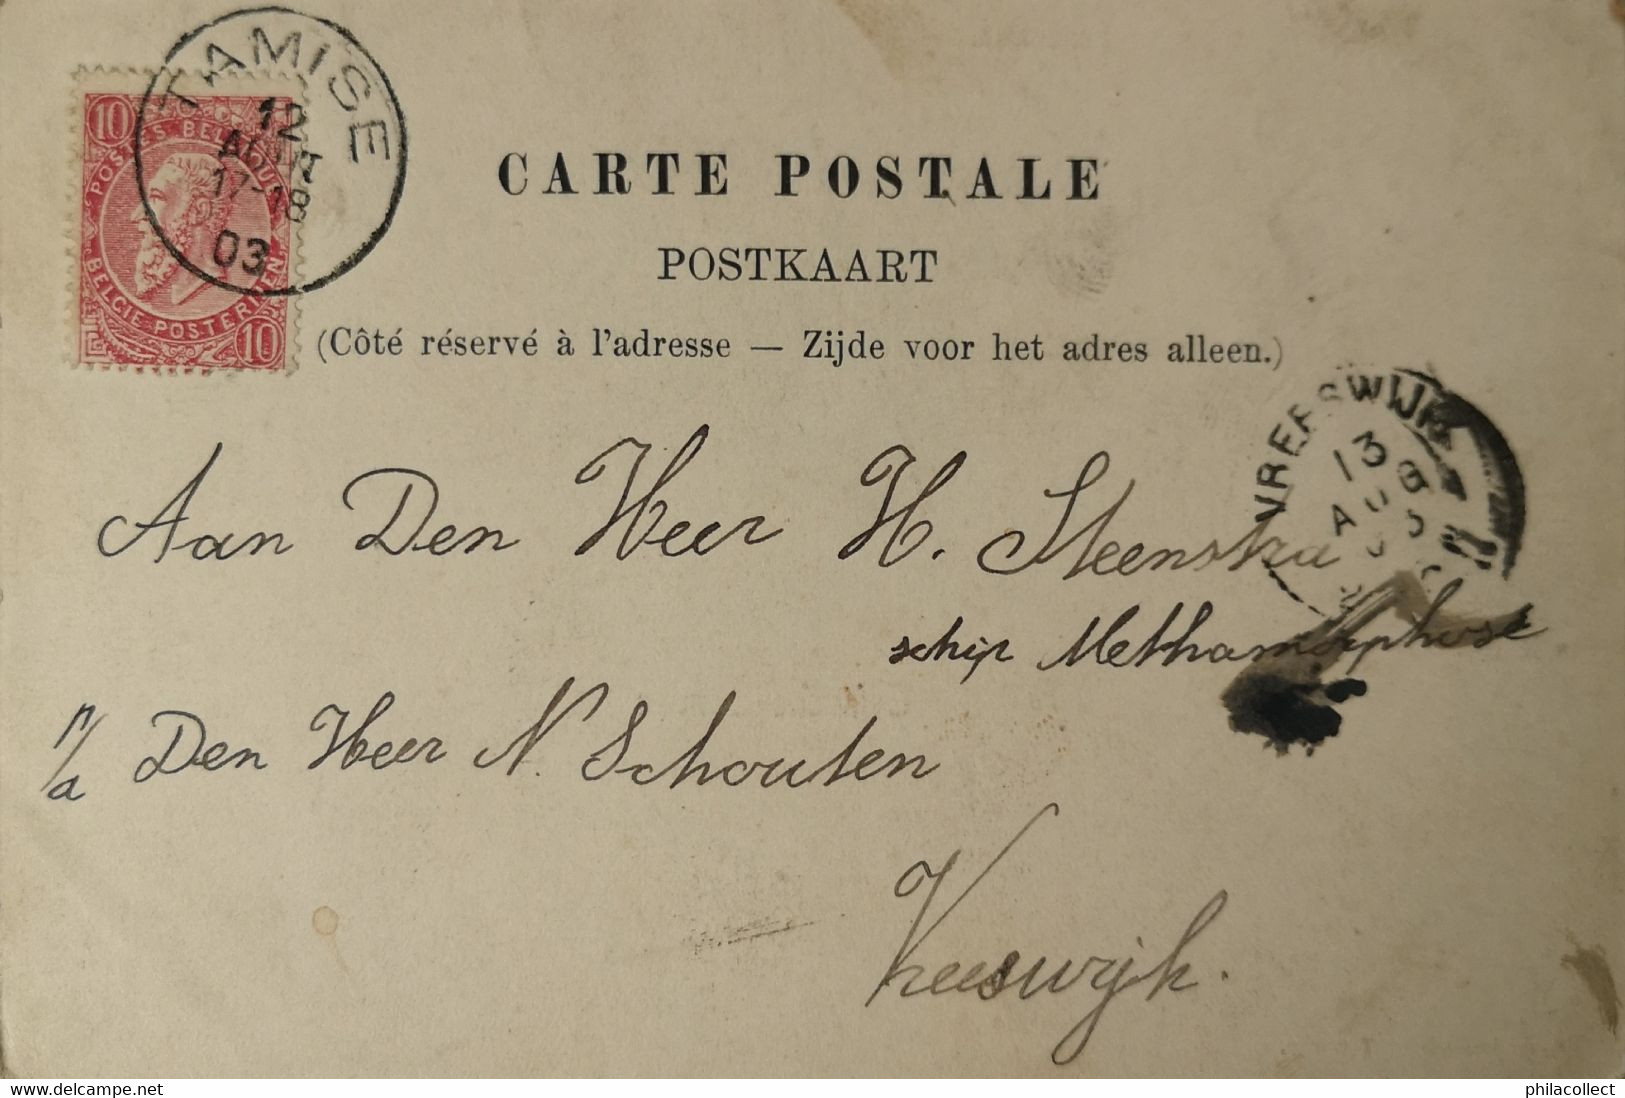 TAMISE
12
AOUT
17-18
03
10
POSTES BELGIQUE
BELGIE POSTERIJEN
10
CARTE POSTALE
POSTKAART
(Côté réservé à l'adresse — Zijde voor het adres alleen.)
VREESWIJK
13
Aan Den Heer H. Steenstra
schip Methamorphose
p/a Den Heer N. Schouten
Vreeswijk.
delcampe.net
philacollect